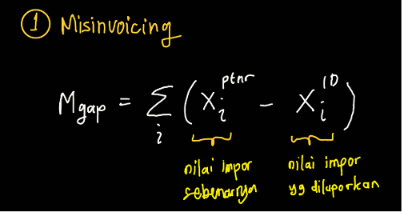 ① Misinvoicing
Mgap = Σᵢ (Xᵢᵖᵗⁿʳ − Xᵢᴵᴰ)
nilai impor sebenarnya
nilai impor yg dilaporkan